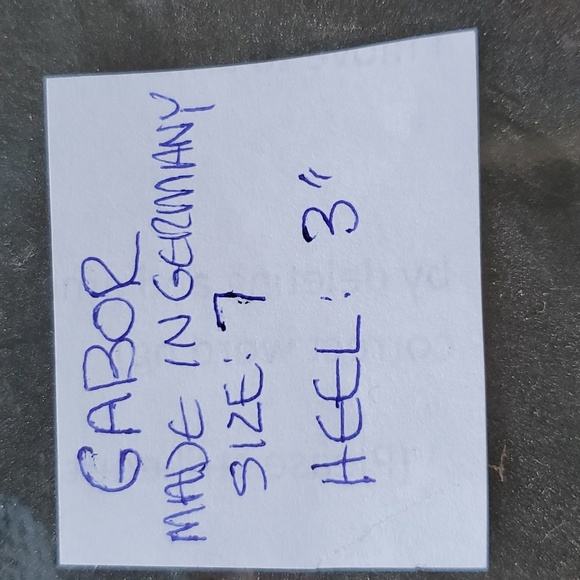 GABOR
MADE IN GERMANY
SIZE: 7
HEEL: 3"